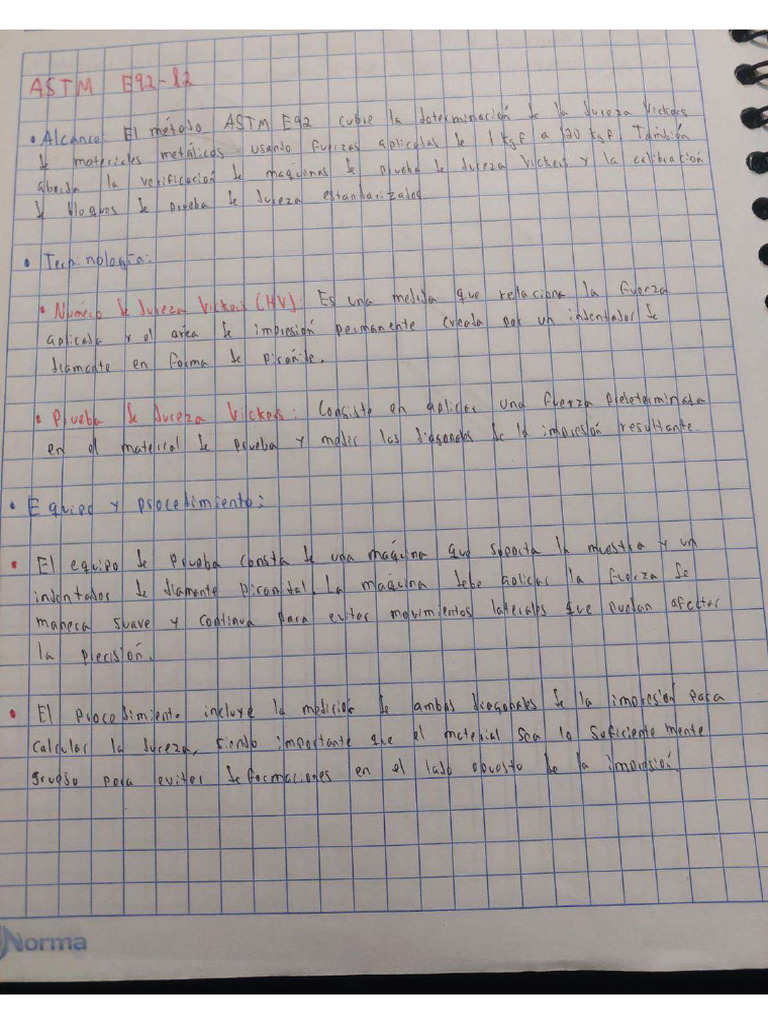 ASTM E92-82
• Alcance: El método ASTM E92 cubre la determinación de la dureza Vickers
de materiales metálicos, usando fuerzas aplicadas de 1 kgf a 120 kgf. También
aborda la verificación de maquinas de prueba de dureza Vickers y la calibración
de bloques de prueba de dureza estandarizados
• Terminología:
• Número de dureza Vickers (HV): Es una medida que relaciona la fuerza
aplicada y el area de impresión permanente creada por un indentador de
diamante en forma de pirámide.
• Prueba de dureza Vickers: Consiste en aplicar una fuerza predeterminada
en el material de prueba y medir las diagonales de la impresión resultante
• Equipo y procedimiento:
• El equipo de prueba consta de una máquina que soporta la muestra y un
indentador de diamante piramidal. La máquina debe aplicar la fuerza de
manera suave y continua para evitar movimientos laterales que puedan afectar
la precisión.
• El procedimiento incluye la medición de ambas diagonales de la impresión para
calcular la dureza, siendo importante que el material sea lo suficiente mente
grueso para evitar deformaciones en el lado opuesto de la impresión.
Norma